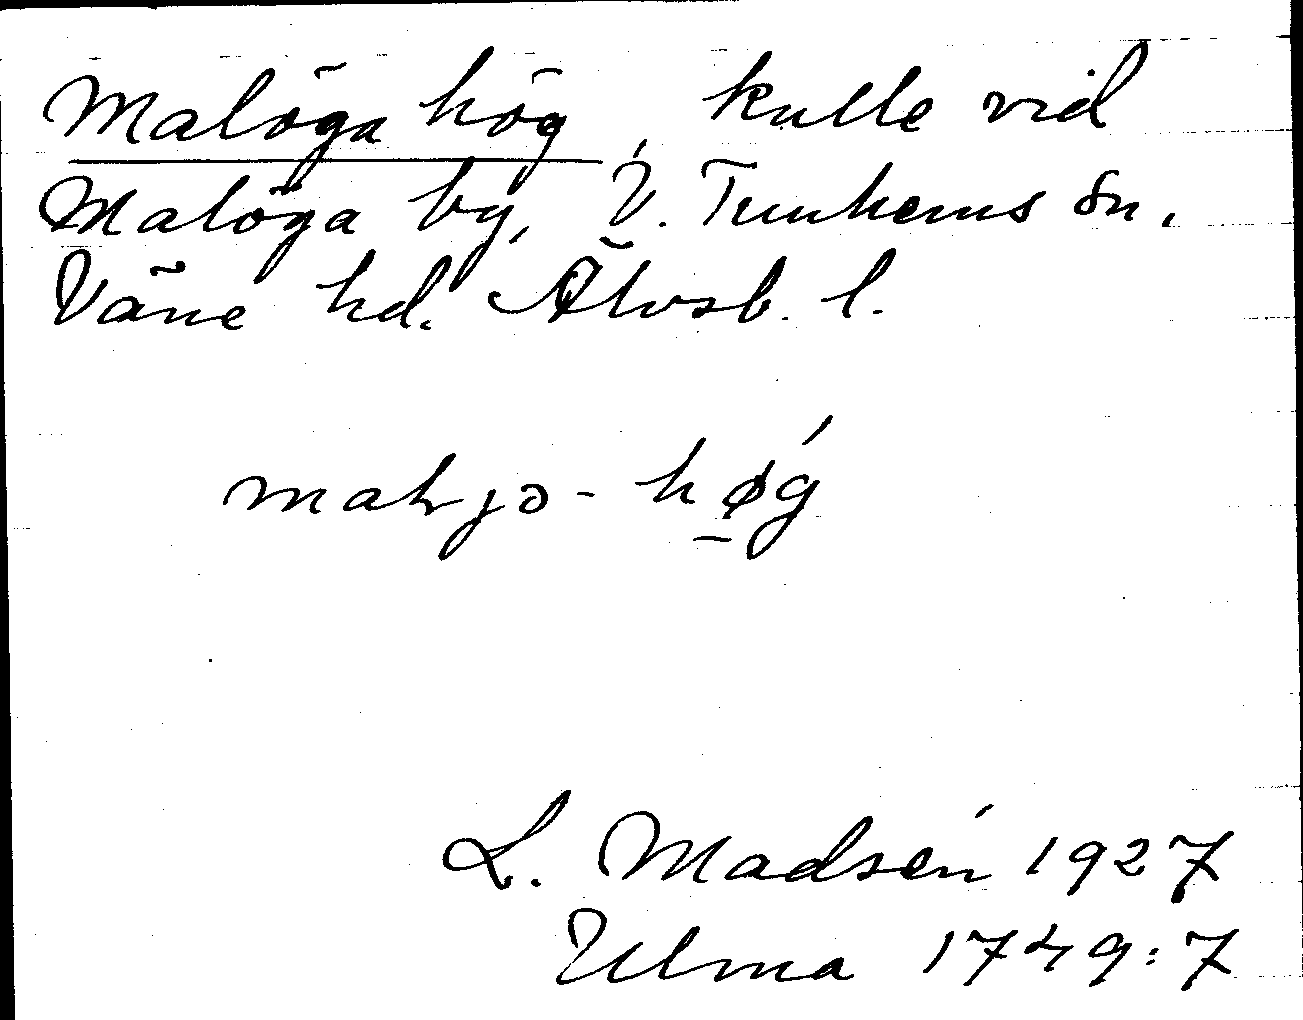 Malöga hög, kulle vid
Malöga by, V. Tunhems sn.
Väne hd. Älvsb. l.
maŀjə-høǵ
L. Madsén 1927
Ulma 1749:7